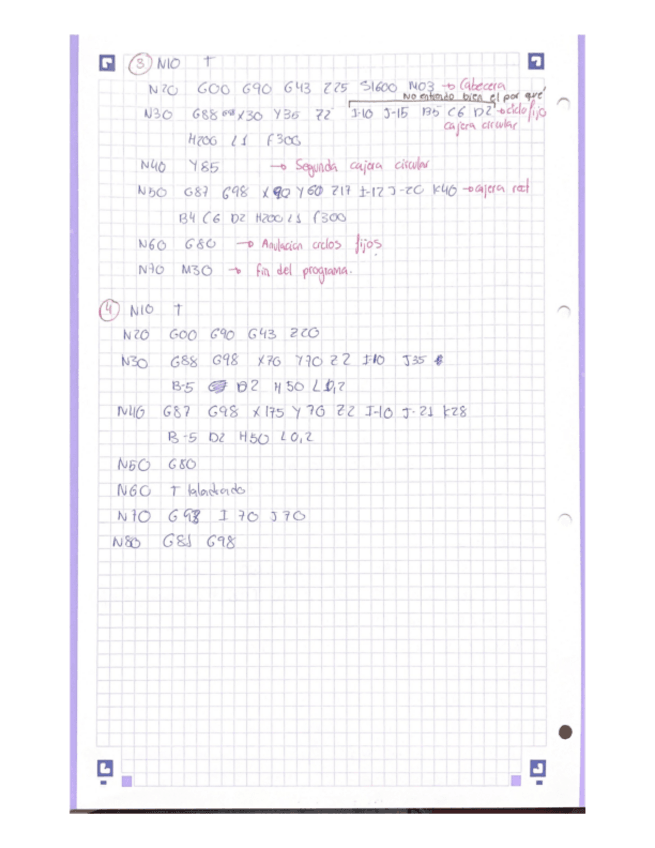 ③ N10 T
N20 G00 G90 G43 Z25 S1600 M03 → Cabecera
No entiendo bien el por qué
N30 G88 X30 Y35 Z2 I-10 J-15 B5 C6 D2 → ciclo fijo
cajera circular
H200 L1 F300
N40 Y85 → Segunda cajera circular
N50 G87 G98 X90 Y60 Z17 I-12 J-20 K40 → cajera rect
B4 C6 D2 H200 L1 F300
N60 G80 → Anulacion ciclos fijos
N70 M30 → Fin del programa.
④ N10 T
N20 G00 G90 G43 Z20
N30 G88 G98 X70 Y70 Z2 I-10 J35
B-5 D2 H50 L0,2
N40 G87 G98 X175 Y70 Z2 I-10 J-21 K28
B-5 D2 H50 L0,2
N50 G80
N60 T taladrado
N70 G93 I70 J70
N80 G81 G98